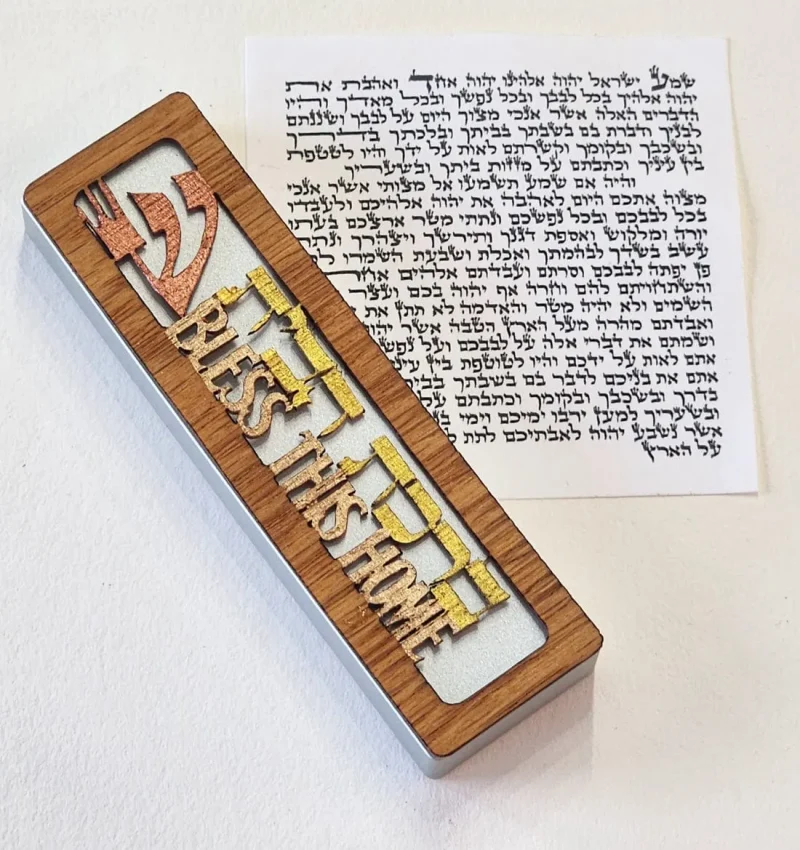 ש
ברכת הבית
BLESS THIS HOME
שמע ישראל יהוה אלהינו יהוה אחד ואהבת את
יהוה אלהיך בכל לבבך ובכל נפשך ובכל מאדך והיו
הדברים האלה אשר אנכי מצוך היום על לבבך ושננתם
לבניך ודברת בם בשבתך בביתך ובלכתך בדרך
ובשכבך ובקומך וקשרתם לאות על ידך והיו לטטפת
בין עיניך וכתבתם על מזוזות ביתך ובשעריך
והיה אם שמע תשמעו אל מצותי אשר אנכי
מצוה אתכם היום לאהבה את יהוה אלהיכם ולעבדו
בכל לבבכם ובכל נפשכם ונתתי מטר ארצכם בעתו
יורה ומלקוש ואספת דגנך ותירשך ויצהרך
עשב בשדך לבהמתך ואכלת ושבעת השמרו
פן יפתה לבבכם וסרתם ועבדתם אלהים
והשתחויתם להם וחרה אף יהוה בכם ועצר
השמים ולא יהיה מטר והאדמה לא תתן את
ואבדתם מהרה מעל הארץ הטבה אשר
ושמתם את דברי אלה על לבבכם ועל
אתם לאות על ידכם והיו לטוטפת בין
אתם את בניכם לדבר בם בשבתך
בדרך ובשכבך ובקומך וכתבתם על
ובשעריך למען ירבו ימיכם וימי
אשר נשבע יהוה לאבתיכם לתת
על הארץ